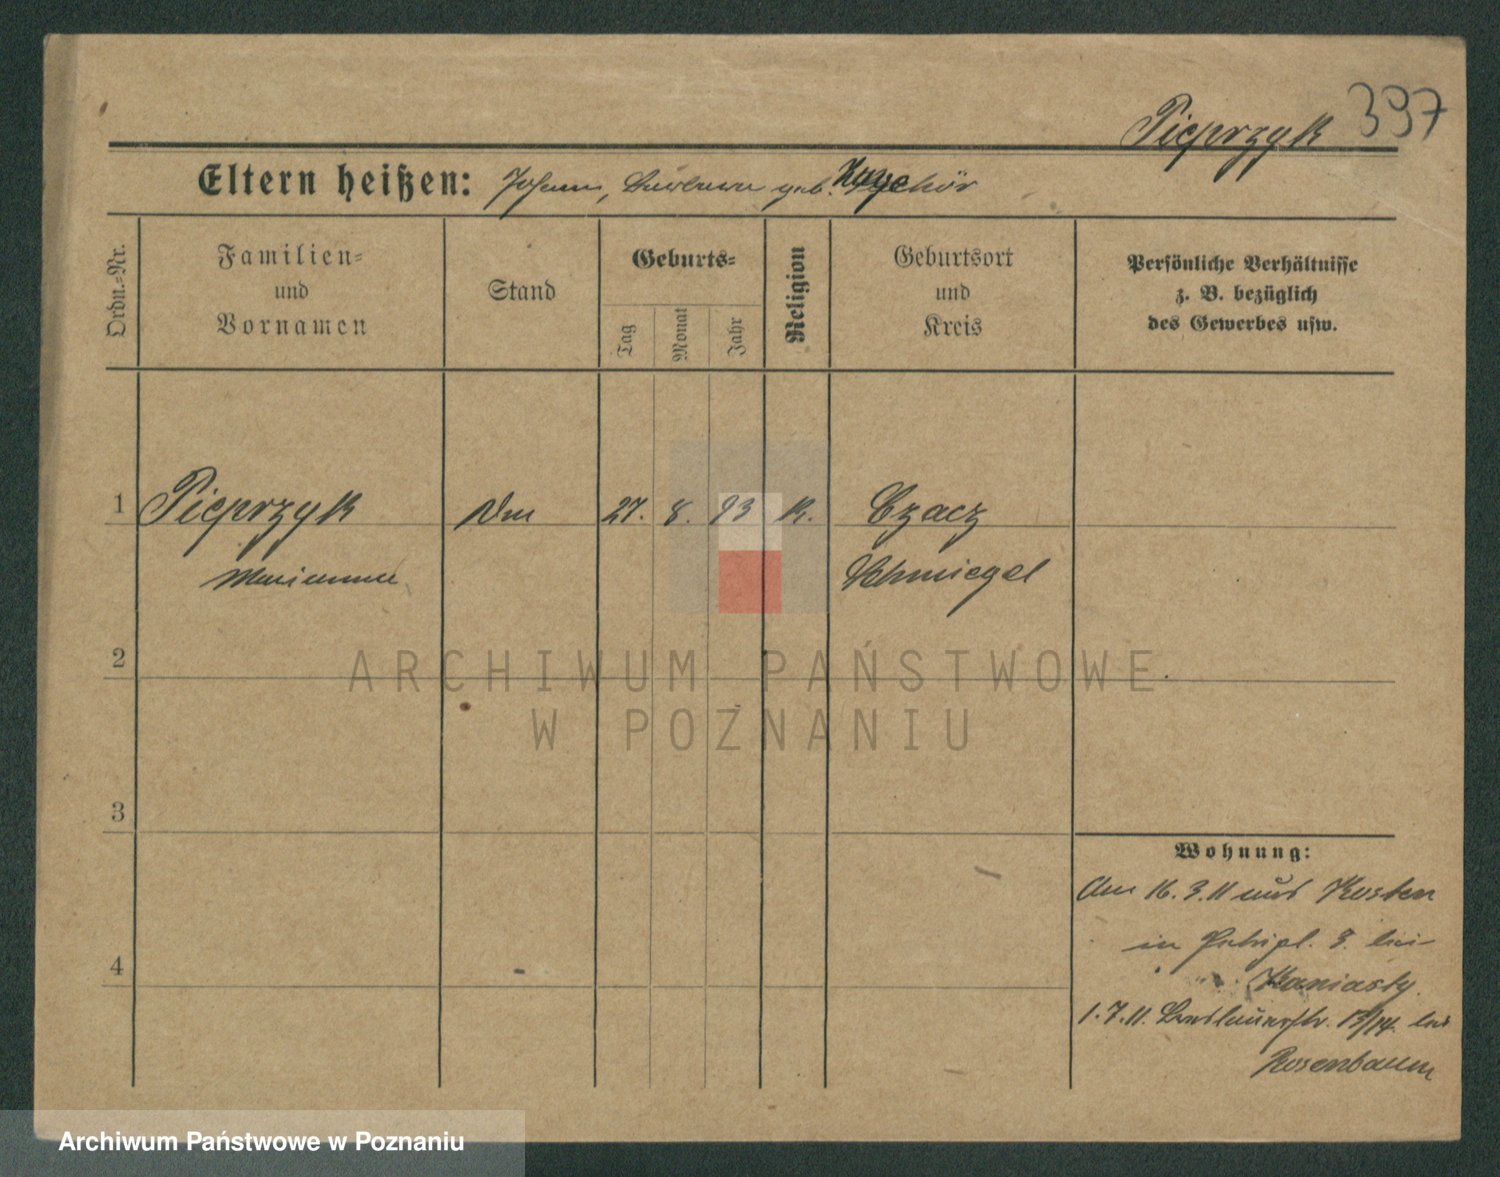 Pieprzyk 397
Eltern heißen: Johann, Barbara geb.
Ordn.-Nr.
Familien-
und
Vornamen
Stand
Geburts-
Tag
Monat
Jahr
Religion
Geburtsort
und
Kreis
Persönliche Verhältnisse
z. B. bezüglich
des Gewerbes usw.
1 Pieprzyk 27. 8. 93 K. Czacz
Marianna Schmiegel
2
3
4
Wohnung:
Am 16. 3. 11 aus Kosten
in Petripl. 3. bei
Kaniasty.
1. 7. 11. Breslauerstr. 13/14. bei
Rosenbaum
ARCHIWUM PAŃSTWOWE
W POZNANIU
Archiwum Państwowe w Poznaniu